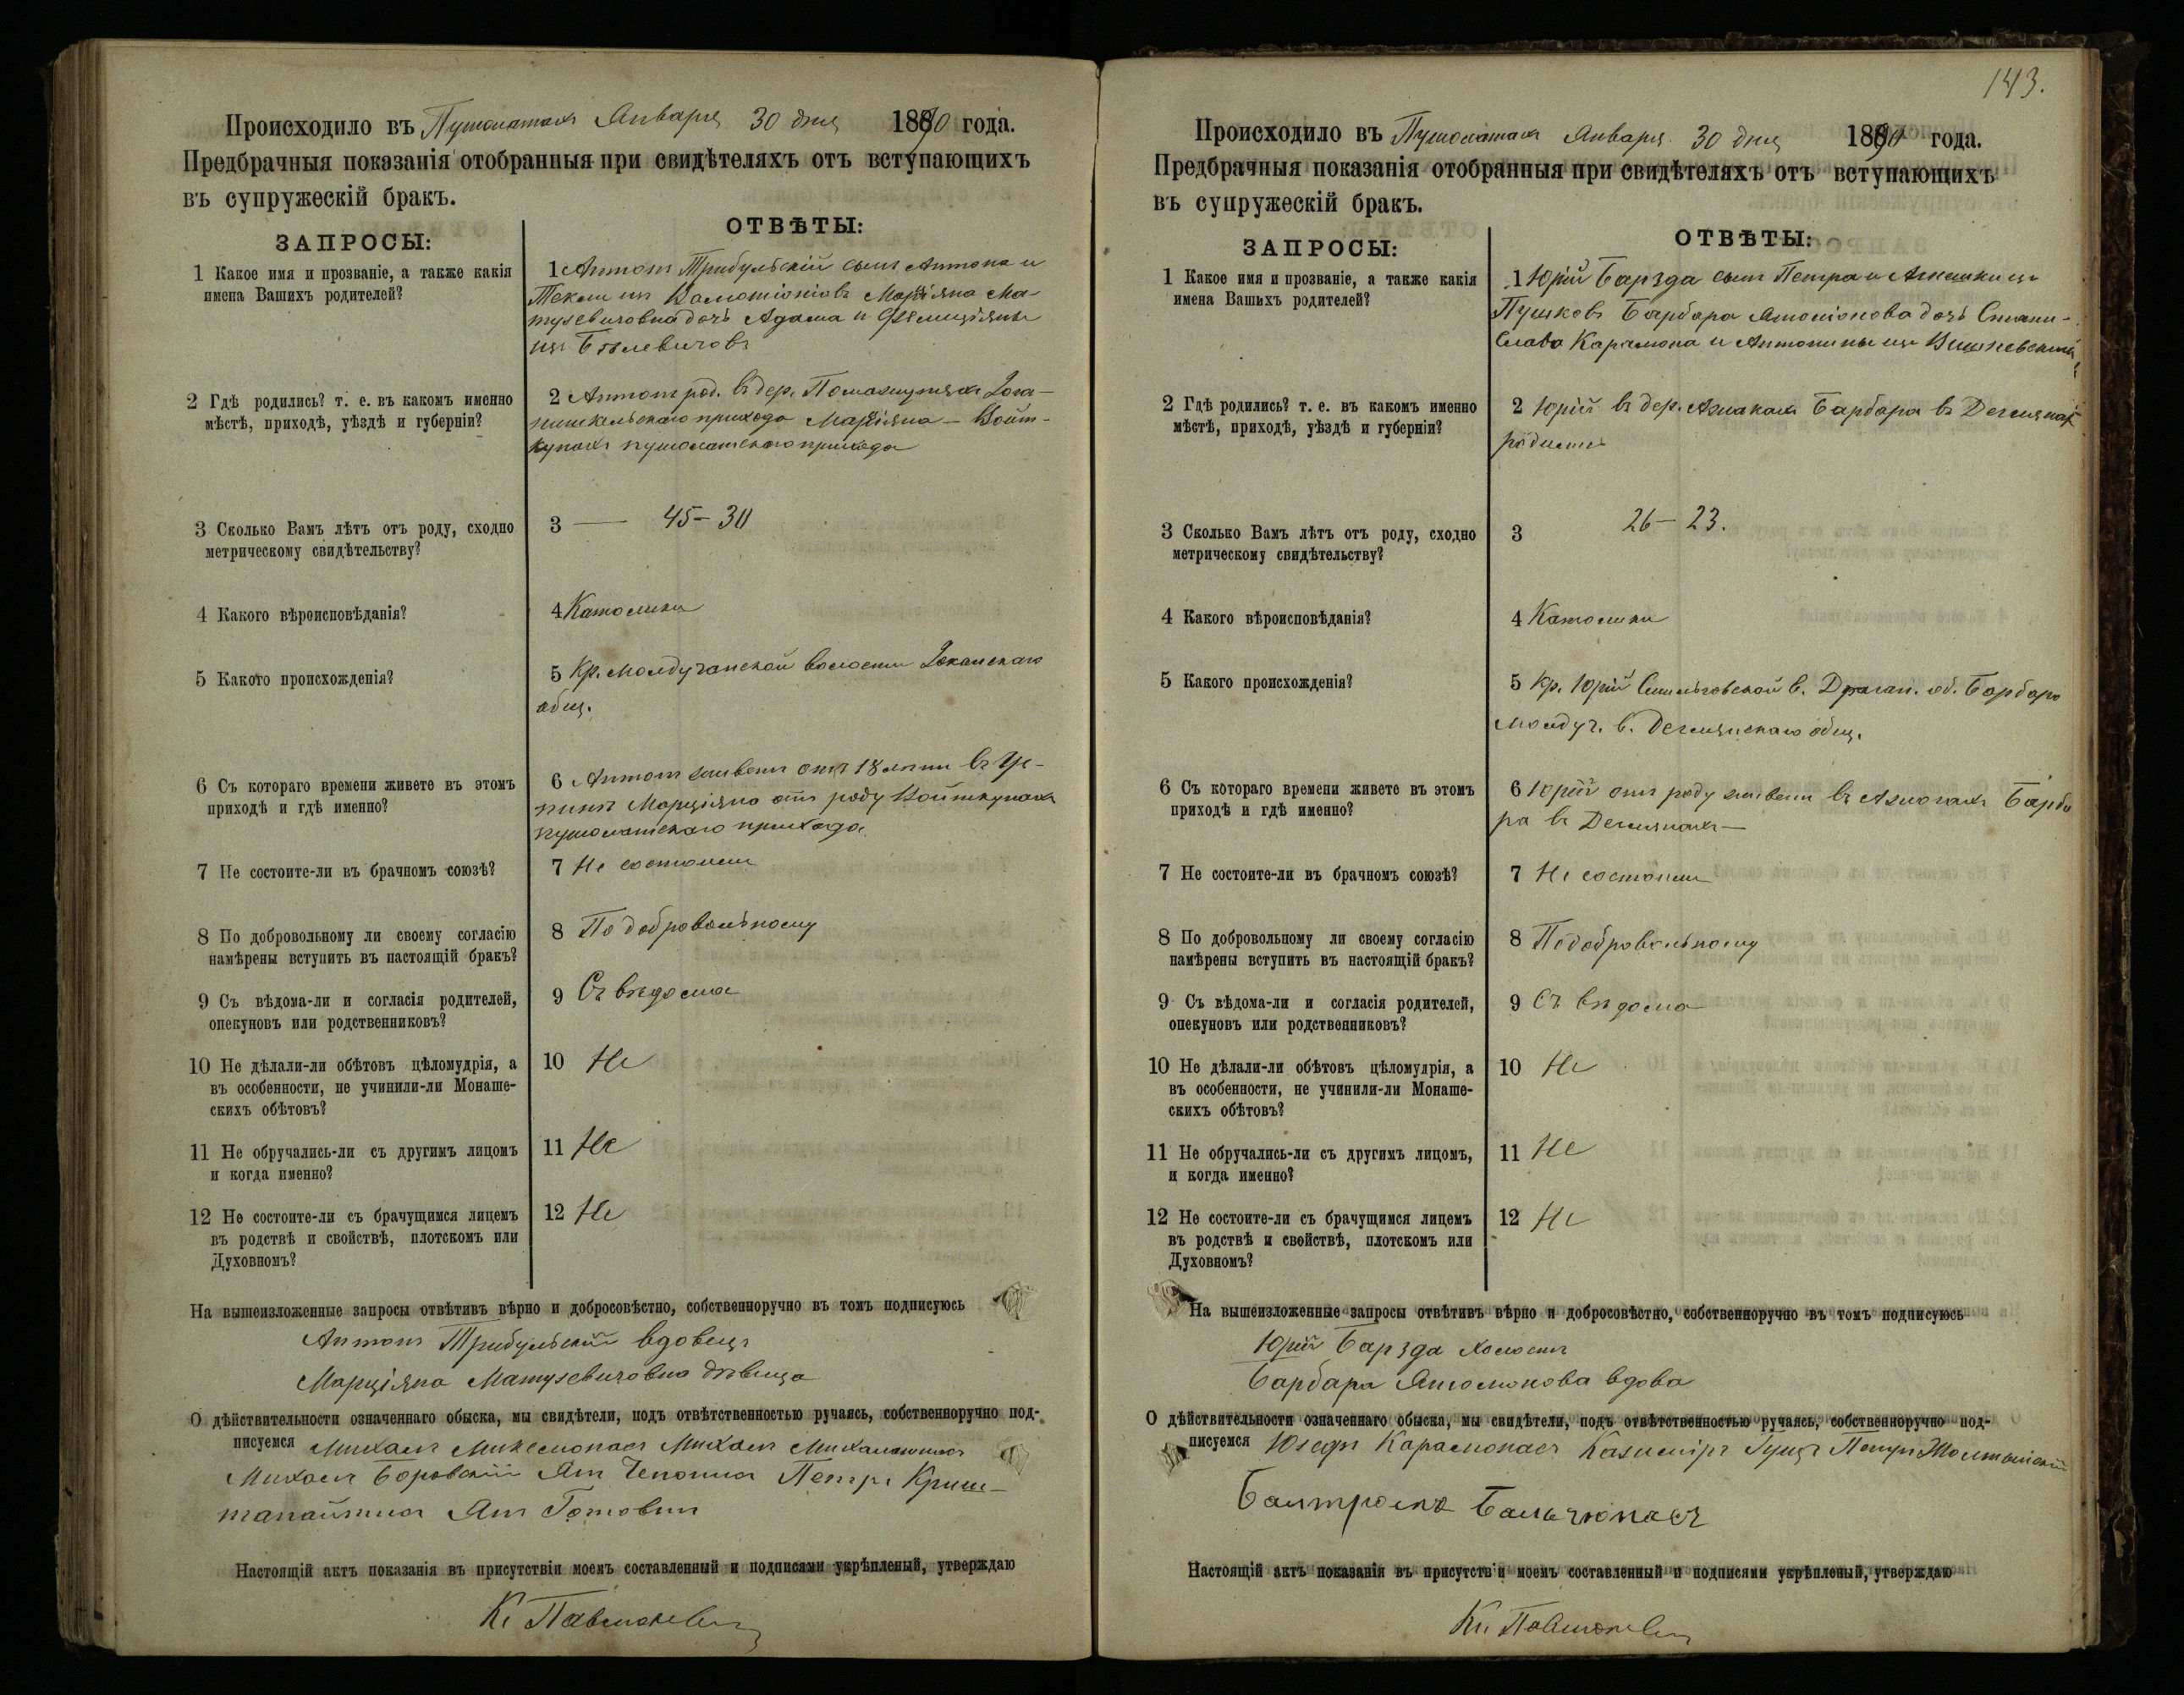 Происходило въ Пушолатахъ Января 30 дня 1890 года.
Предбрачныя показанія отобранныя при свидѣтеляхъ отъ вступающихъ
въ супружескій бракъ.
ЗАПРОСЫ:
ОТВѢТЫ:
1 Какое имя и прозваніе, а также какія
имена Вашихъ родителей?
1 Антонъ Трибульскій сынъ Антона и
Текли изъ Марціяна Ма-
тусевичовна дочь Адама и
изъ
2 Гдѣ родились? т. е. въ какомъ именно
мѣстѣ, приходѣ, уѣздѣ и губерніи?
2 Антонъ род. въ дер.
прихода Марціяна — Войт-
купахъ пушолатскаго прихода
3 Сколько Вамъ лѣтъ отъ роду, сходно
метрическому свидѣтельству?
3 — 45 – 30
4 Какого вѣроисповѣданія?
4 Католики
5 Какого происхожденія?
5 Кр. Молдучанской волости
общ.
6 Съ котораго времени живете въ этомъ
приходѣ и гдѣ именно?
6 Антонъ живетъ отъ 18 лѣтъ въ
Марціяна отъ роду Войткупахъ
пушолатскаго прихода.
7 Не состоите-ли въ брачномъ союзѣ?
7 Не состоимъ
8 По добровольному ли своему согласію
намѣрены вступить въ настоящій бракъ?
8 По добровольному
9 Съ вѣдома-ли и согласія родителей,
опекуновъ или родственниковъ?
9 Съ вѣдома
10 Не дѣлали-ли обѣтовъ цѣломудрія, а
въ особенности, не учинили-ли Монаше-
скихъ обѣтовъ?
10 Не
11 Не обручались-ли съ другимъ лицомъ
и когда именно?
11 Не
12 Не состоите-ли съ брачущимся лицемъ
въ родствѣ и свойствѣ, плотскомъ или
Духовномъ?
12 Не
На вышеизложенные запросы отвѣтивъ вѣрно и добросовѣстно, собственноручно въ томъ подписуюсь
Антонъ Трибульскій вдовецъ
Марціяна Матусевичовна дѣвица
О дѣйствительности означеннаго обыска, мы свидѣтели, подъ отвѣтственностью ручаясь, собственноручно под-
писуемся Михаилъ Микелюнасъ Михаилъ
Михаилъ Боровскій Янъ Чепонисъ Петръ Криш-
танайтисъ Янъ Готовтъ
Настоящій актъ показанія въ присутствіи моемъ составленный и подписями укрѣпленый, утверждаю
143.
Происходило въ Пушолатахъ Января 30 дня 1890 года.
Предбрачныя показанія отобранныя при свидѣтеляхъ отъ вступающихъ
въ супружескій бракъ.
ЗАПРОСЫ:
ОТВѢТЫ:
1 Какое имя и прозваніе, а также какія
имена Вашихъ родителей?
1 Юрій Барзда сынъ Петра и Агнешки изъ
Барбара дочь Стани-
слава Карамона и Антонины изъ
2 Гдѣ родились? т. е. въ какомъ именно
мѣстѣ, приходѣ, уѣздѣ и губерніи?
2 Юрій въ дер. Барбара въ
родились
3 Сколько Вамъ лѣтъ отъ роду, сходно
метрическому свидѣтельству?
3 26 – 23.
4 Какого вѣроисповѣданія?
4 Католики
5 Какого происхожденія?
5 Кр. Юрій в. об. Барбара
Молдуч. в. общ.
6 Съ котораго времени живете въ этомъ
приходѣ и гдѣ именно?
6 Юрій отъ роду живетъ въ Барба
ра въ
7 Не состоите-ли въ брачномъ союзѣ?
7 Не состоимъ
8 По добровольному ли своему согласію
намѣрены вступить въ настоящій бракъ?
8 По добровольному
9 Съ вѣдома-ли и согласія родителей,
опекуновъ или родственниковъ?
9 Съ вѣдома
10 Не дѣлали-ли обѣтовъ цѣломудрія, а
въ особенности, не учинили-ли Монаше-
скихъ обѣтовъ?
10 Не
11 Не обручались-ли съ другимъ лицомъ,
и когда именно?
11 Не
12 Не состоите-ли съ брачущимся лицемъ
въ родствѣ и свойствѣ, плотскомъ или
Духовномъ?
12 Не
На вышеизложенные запросы отвѣтивъ вѣрно и добросовѣстно, собственноручно въ томъ подписуюсь
Юрій Барзда холостъ
Барбара вдова
О дѣйствительности означеннаго обыска, мы свидѣтели, подъ отвѣтственностью ручаясь, собственноручно под-
писуемся Юзефъ Карамонасъ Казиміръ Петръ
Балтромъ Бальчюнасъ
Настоящій актъ показанія въ присутствіи моемъ составленный и подписями укрѣпленый, утверждаю